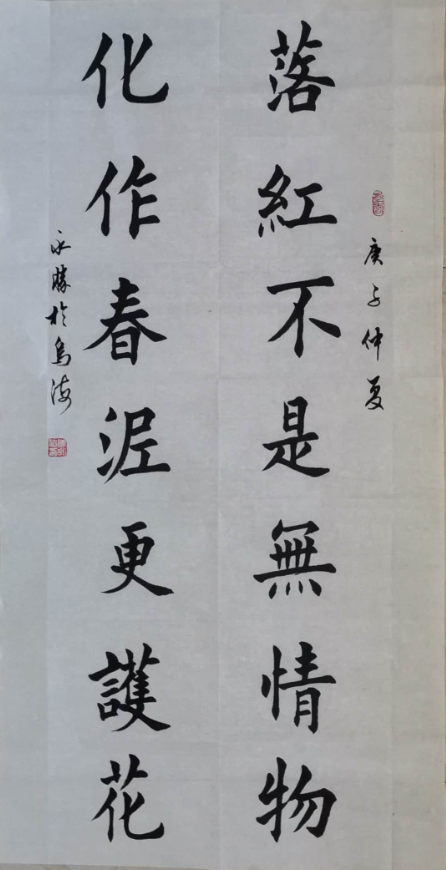 庚子仲夏
落紅不是無情物
化作春泥更護花
永勝於烏海